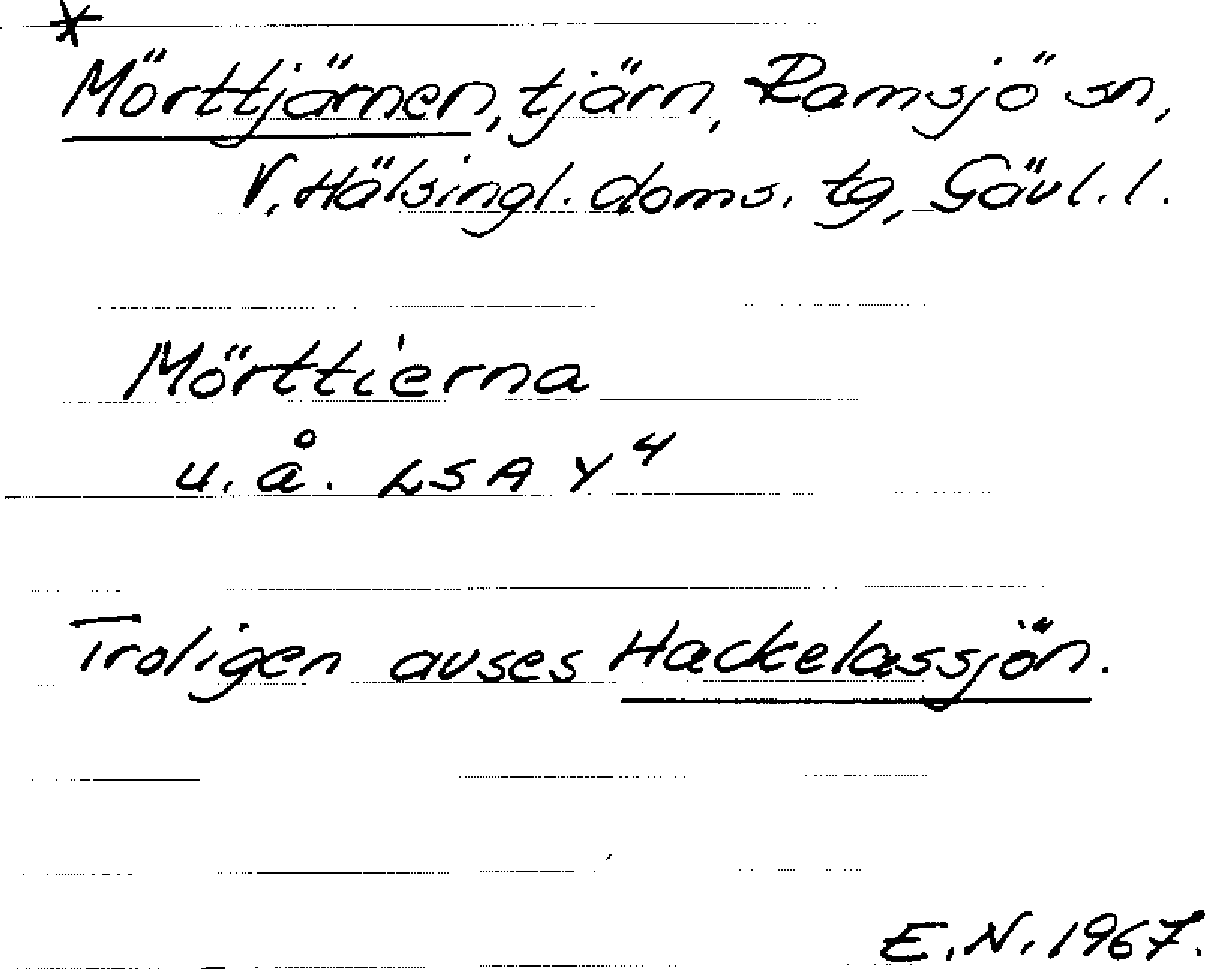 *
Mörttjärnen, tjärn, Ramsjö sn,
V. Hälsingl. doms. tg, Gävl. l.
Mörttierna
u. å. LSA Y4
Troligen avses Hackelassjön.
E. N. 1967.